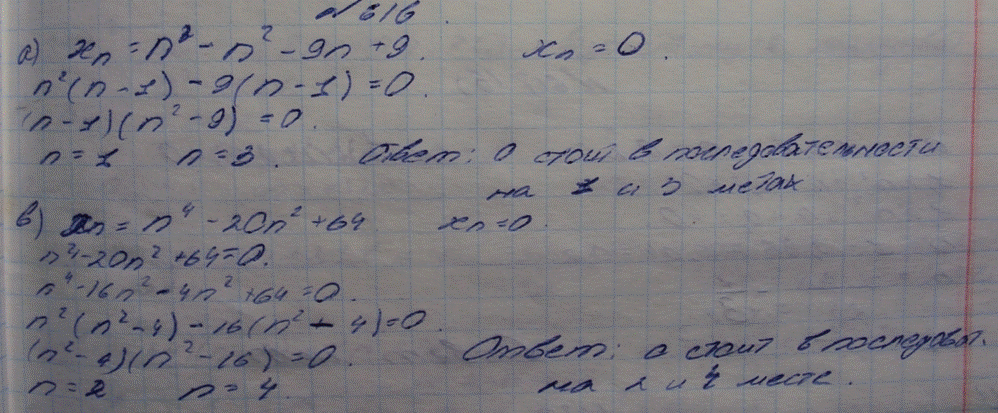 № 616.
а) xn = n³ - n² - 9n + 9. xn = 0.
n²(n-1) - 9(n-1) = 0.
(n-1)(n²-9) = 0.
n=1 n=3. Ответ: 0 стоит в последовательности
на 1 и 3 метах
в) xn = n⁴ - 20n² + 64 xn=0.
n⁴-20n²+64=0.
n⁴-16n²-4n²+64=0.
n²(n²-4)-16(n²-4)=0.
(n²-4)(n²-16)=0. Ответ: 0 стоит в последоват.
n=2 n=4. на 2 и 4 месте.